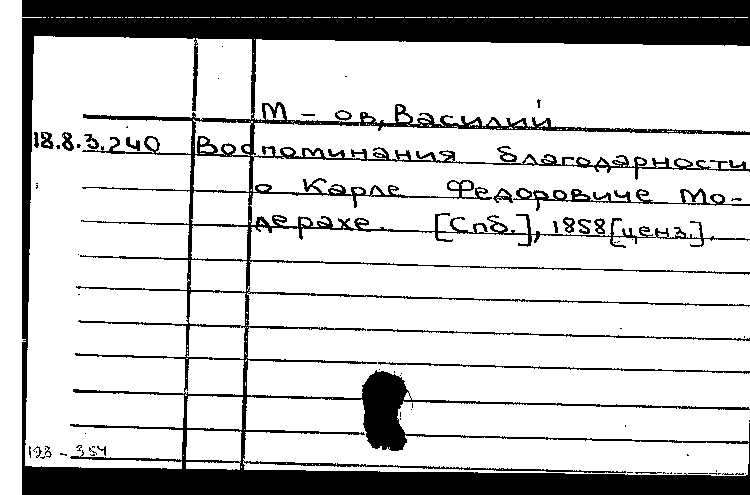 М – ов, Василий
18.8.3.240 Воспоминания благодарности
о Карле Федоровиче Мо-
дерахе. [Спб.], 1858 [ценз.].
193 – 354